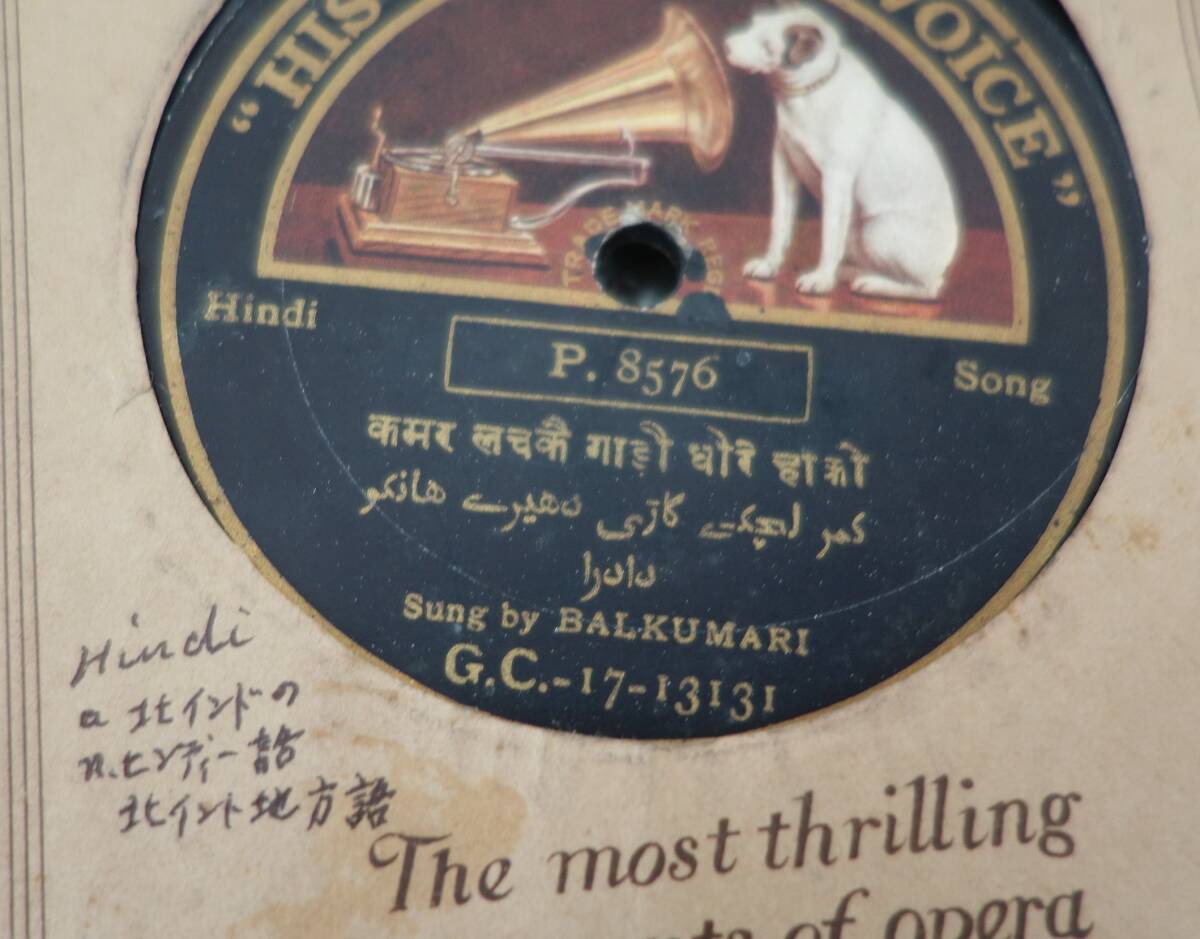 "HIS
VOICE"
TRADE MARK REGD
Hindi
P. 8576
Song
कमर लचकै गाड़ी धीरे हाको
کمر لچکے گاڑی دھیرے ھانکو
دادرا
Sung by BALKUMARI
G.C.-17-13131
Hindi
a 北インドの
n.ヒンディー語
北インド地方語
The most thrilling
of opera